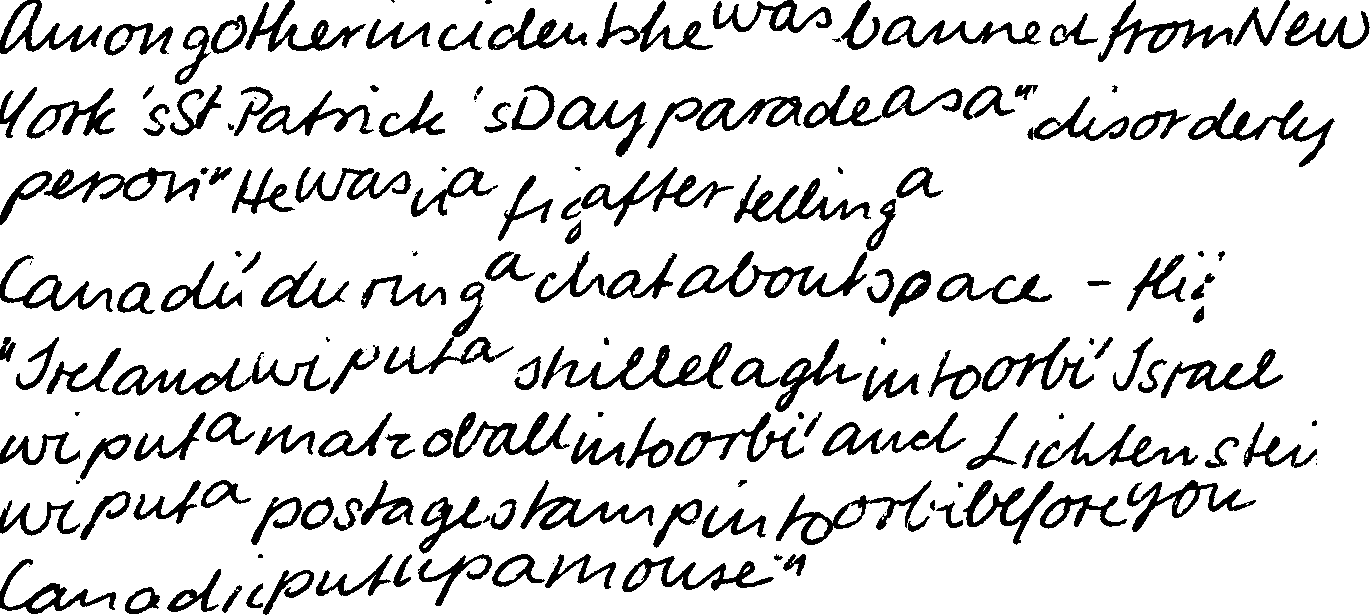 Among other incidents he was banned from New
York's St. Patrick's Day parade as a "disorderly
person" He was in a fig after telling a
Canadi during a chat about space - Hi
"Ireland wi put a shillelagh into orbi' Israel
wi put a matzo ball into orbi' and Lichtenstei
wi put a postage stamp into orbi before you
Canadi put up a mouse"